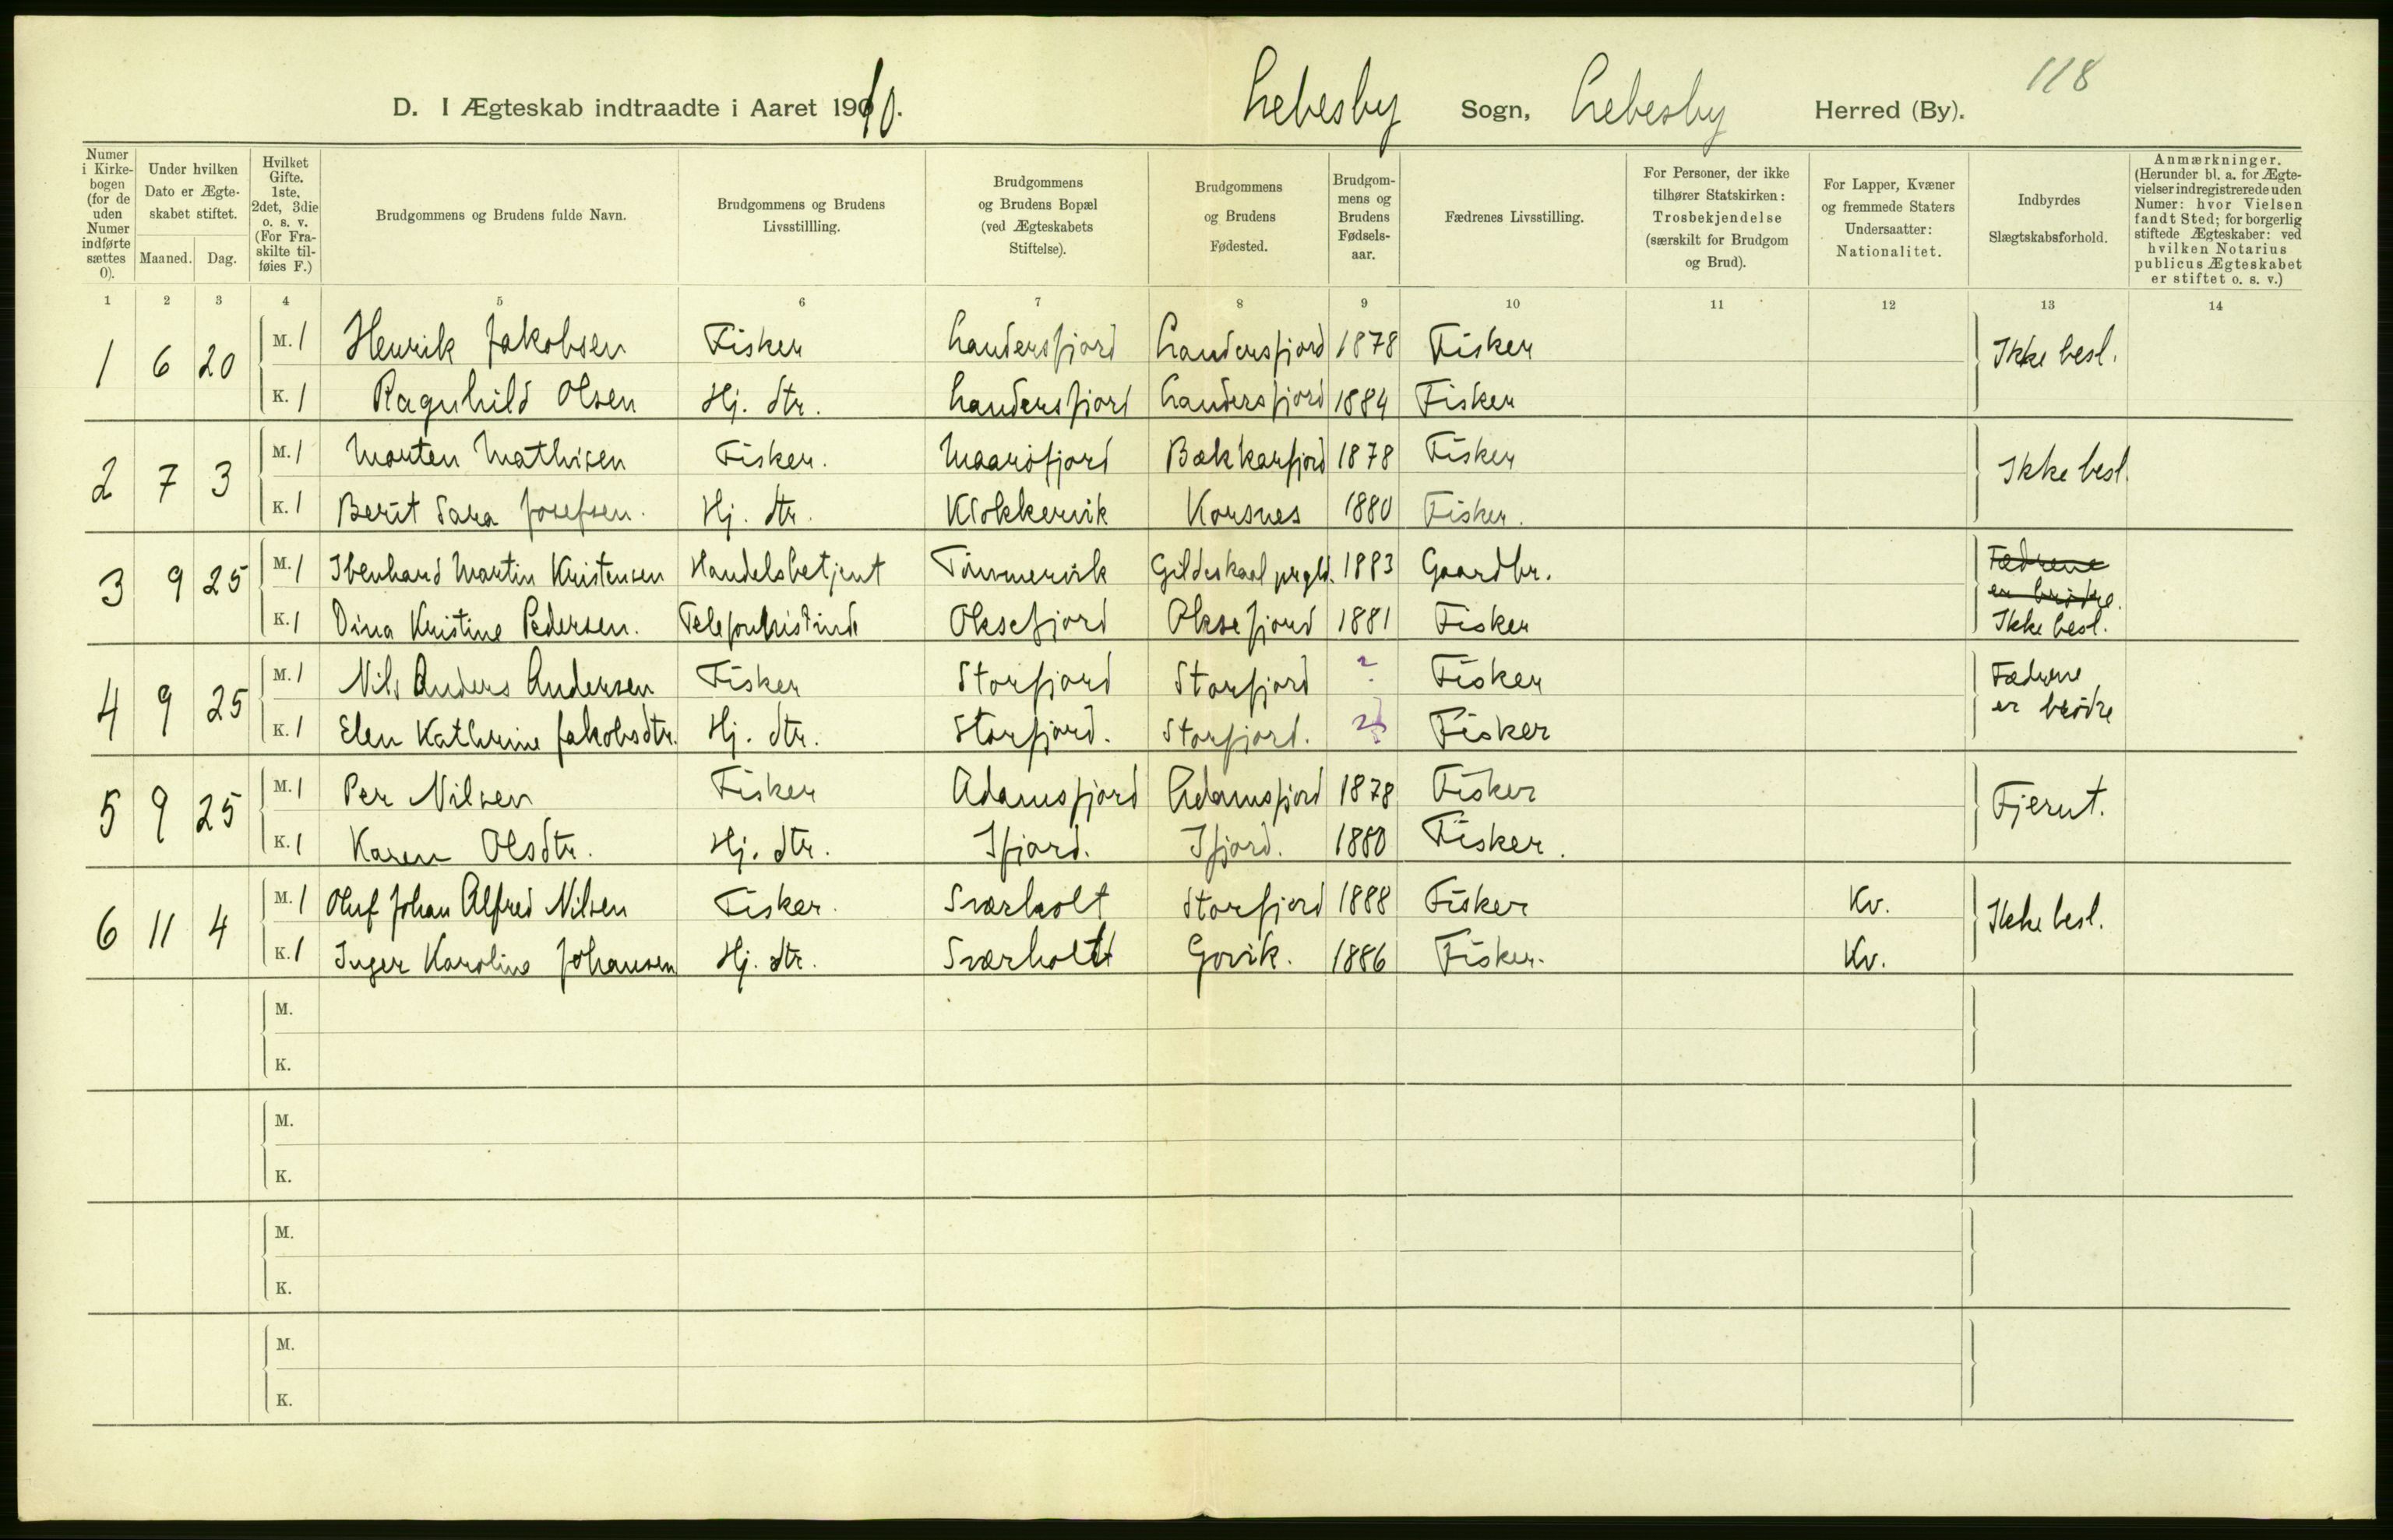 118
D. I Ægteskab indtraadte i Aaret 1910. Lebesby Sogn, Lebesby Herred (By).
Numer i Kirkebogen (for de uden Numer indførte sættes 0).
Under hvilken Dato er Ægteskabet stiftet.
Maaned. Dag.
Hvilket Gifte. 1ste, 2det, 3die o. s. v. (For Fraskilte tilføies F.)
Brudgommens og Brudens fulde Navn.
Brudgommens og Brudens Livsstillling.
Brudgommens og Brudens Bopæl (ved Ægteskabets Stiftelse).
Brudgommens og Brudens Fødested.
Brudgommens og Brudens Fødselsaar.
Fædrenes Livsstilling.
For Personer, der ikke tilhører Statskirken: Trosbekjendelse (særskilt for Brudgom og Brud).
For Lapper, Kvæner og fremmede Staters Undersaatter: Nationalitet.
Indbyrdes Slægtskabsforhold.
Anmærkninger. (Herunder bl. a. for Ægtevielser indregistrerede uden Numer: hvor Vielsen fandt Sted; for borgerlig stiftede Ægteskaber: ved hvilken Notarius publicus Ægteskabet er stiftet o. s. v.)
1 2 3 4 5 6 7 8 9 10 11 12 13 14
1 6 20 M. 1 Henrik Jakobsen Fisker Landersfjord Landersfjord 1878 Fisker Ikke besl.
K. 1 Ragnhild Olsen Hj. dtr. Landersfjord Landersfjord 1884 Fisker
2 7 3 M. 1 Morten Mathisen Fisker. Maarøfjord Bækkarfjord 1878 Fisker Ikke besl.
K. 1 Berit Sara Josefsen. Hj. dtr. Klokkervik Korsnes 1880 Fisker.
3 9 25 M. 1 Ibenhard Martin Kristensen Handelsbetjent Tømmervik Gildeskaal prgld. 1883 Gaardbr. Fædrene er brødre.
K. 1 Dina Kristine Pedersen. Telefonistinde Oksefjord Oksefjord 1881 Fisker Ikke besl.
4 9 25 M. 1 Nils Anders Andersen Fisker Storfjord Storfjord ? Fisker Fædrene er brødre
K. 1 Elen Kathrine Jakobsdtr. Hj. dtr. Storfjord. Storfjord. Fisker
5 9 25 M. 1 Per Nilsen Fisker Adamsfjord Adamsfjord 1878 Fisker Fjernt.
K. 1 Karen Olsdtr. Hj. dtr. Ifjord. Ifjord. 1880 Fisker.
6 11 4 M. 1 Oluf Johan Alfred Nilsen Fisker. Sværholt Storfjord 1888 Fisker Kv. Ikke besl.
K. 1 Inger Karoline Johansen Hj. dtr. Sværholt Govik. 1886 Fisker. Kv.
M.
K.
M.
K.
M.
K.
M.
K.